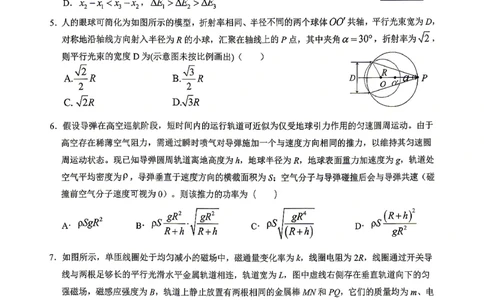 D. x₂-x₁<x₃-x₂，ΔE₁>ΔE₂>ΔE₃
5. 人的眼球可简化为如图所示的模型，折射率相同、半径不同的两个球体OO'共轴，平行光束宽为D，
对称地沿轴线方向射入半径为R的小球，汇聚在轴线上的P点，其中夹角α=30°，折射率为√2，
则平行光束的宽度D为(示意图未按比例画出)（  ）
A. √2/2 R  B. √3/2 R
C. √2R  D. √3R
D R O O' α P
6. 假设导弹在高空巡航阶段，短时间内的运行轨道可近似为仅受地球引力作用的匀速圆周运动。由于
高空存在稀薄空气阻力，需通过瞬时喷气对导弹施加一个与速度方向相同的推力，以维持其匀速圆
周运动状态。现已知导弹圆周轨道离地高度为h，地球半径为R，地球表面重力加速度为g，轨道处
空气平均密度为ρ，导弹垂直于速度方向的横截面积为S；空气分子与导弹碰撞后会与导弹共速（碰
撞前空气分子速度可视为0）。则该推力的功率为（  ）
A. ρSgR²  B. ρS gR²/(R+h)·√(gR²/(R+h))  C. ρS√(gR⁴/(R+h))  D. ρS (R+h)²/gR²
7. 如图所示，单匝线圈处于均匀减小的磁场中，磁通量变化率为k，线圈电阻为2R，线圈通过开关导
线与两根足够长的平行光滑水平金属轨道相连，轨道宽为L，图中虚线右侧存在垂直轨道向下的匀
强磁场，磁感应强度为B，轨道上静止放置有两根相同的金属棒MN和PQ，它们的质量均为m、电